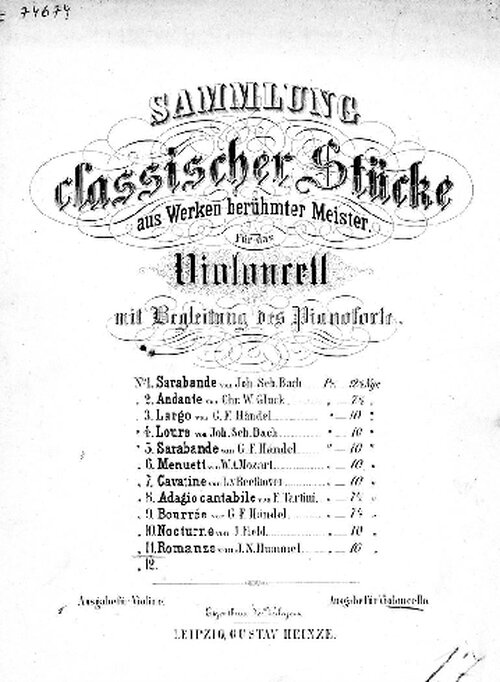 74674
SAMMLUNG
classischer Stücke
aus Werken berühmter Meister.
Für das
Violoncell
mit Begleitung des Pianoforte.
No 1. Sarabande von Joh. Seb. Bach Pr. 12½ Ngr.
„ 2. Andante von Chr. W. Gluck „ 7½ „
„ 3. Largo von G. F. Händel „ 10 „
„ 4. Loure von Joh. Seb. Bach „ 10 „
„ 5. Sarabande von G. F. Händel „ 10 „
„ 6. Menuett von W. A. Mozart „ 10 „
„ 7. Cavatine von L. v. Beethoven „ 10 „
„ 8. Adagio cantabile von F. Tartini. „ 7½ „
„ 9. Bourrée von G. F. Händel „ 7½ „
„ 10. Nocturne von J. Field „ 10 „
„ 11. Romanze von J. N. Hummel „ 10 „
„ 12.
Ausgabe für Violine. Ausgabe für Violoncello.
Eigenthum des Verlegers.
LEIPZIG, GUSTAV HEINZE.